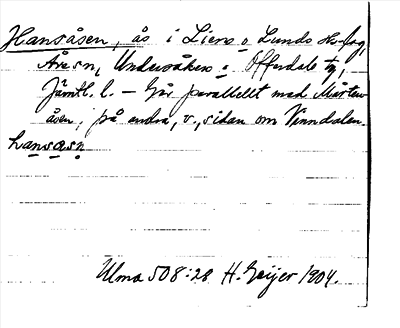 Hansåsen, ås i Liens o Lunds
Åre sn, Undersåkers o Offerdals tg,
Jämtl. l. – Går parallellt med Mårten-
åsen, på andra, v., sidan om Vinndalen.
hansåsn
Ulma 508:28 H. Geijer 1904.